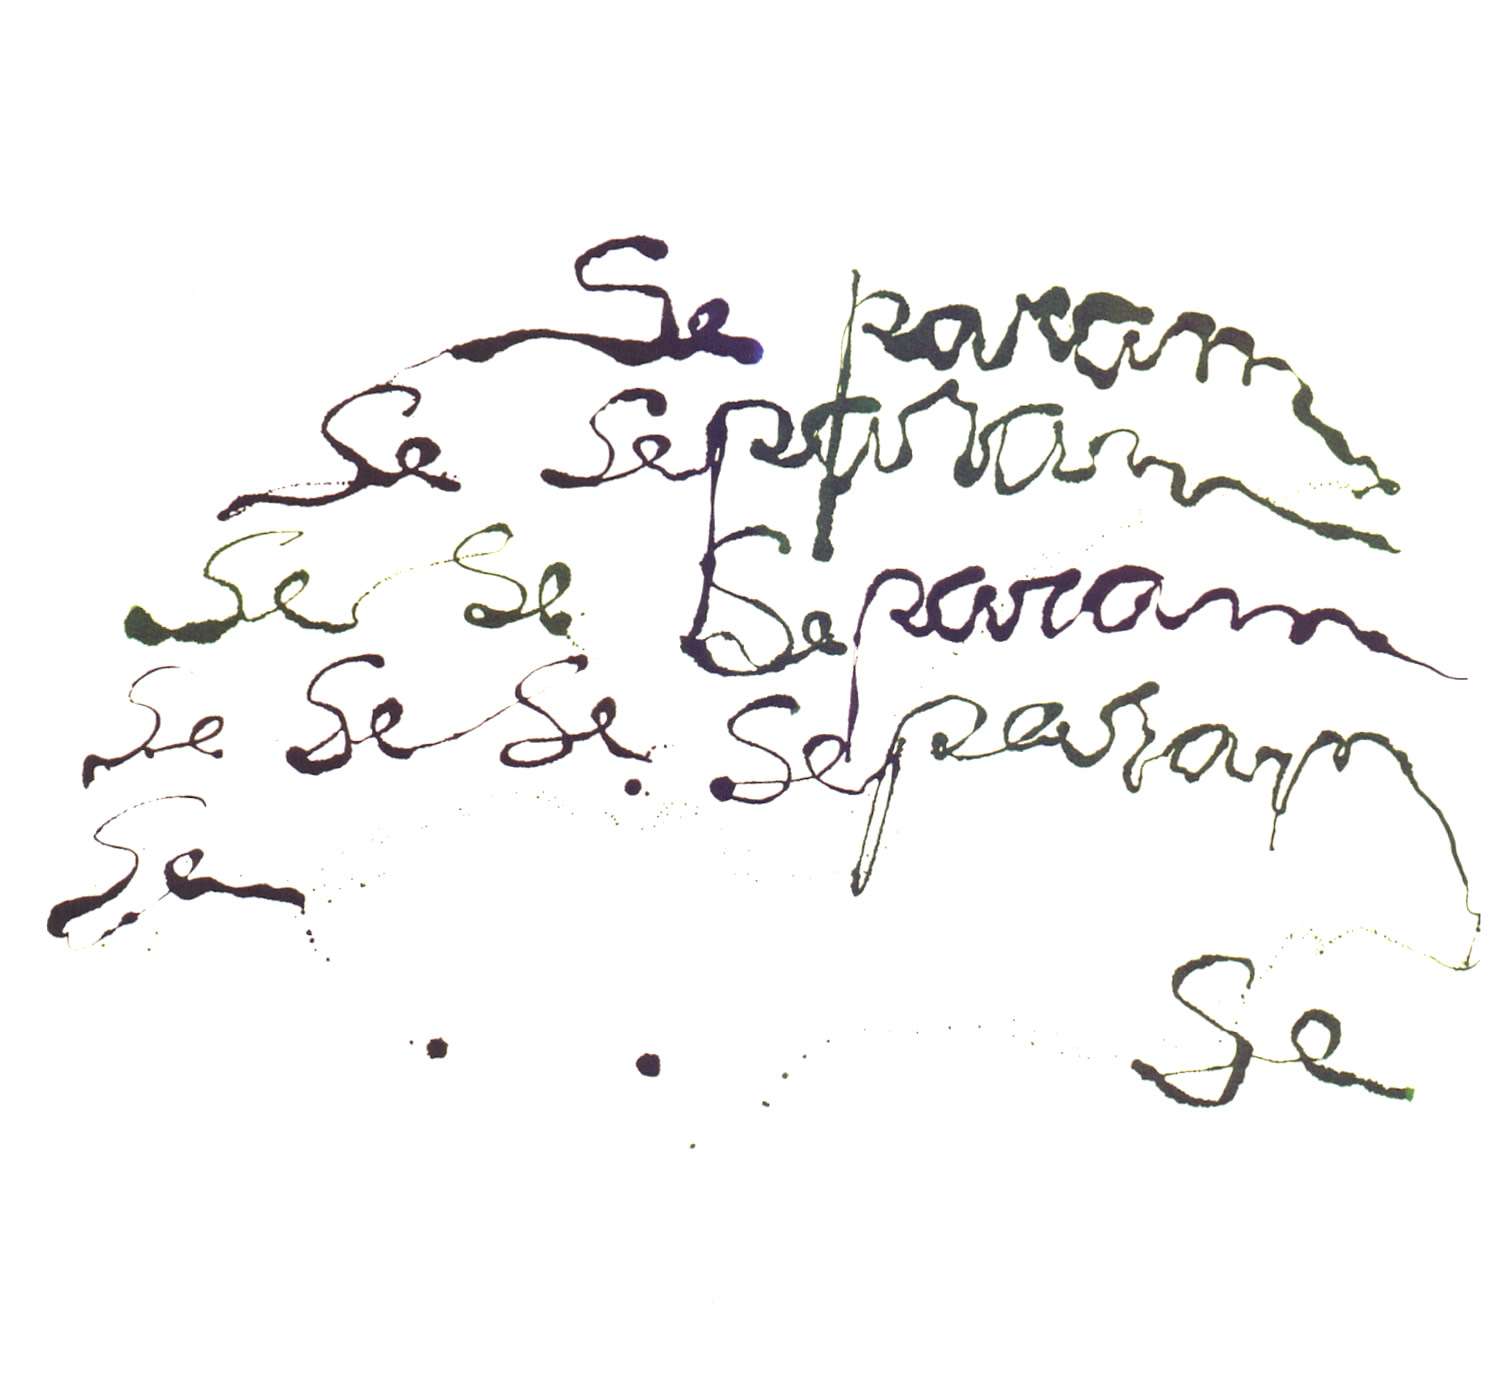 Se param
Se Separam
Se Se Separam
Se Se Se Separam
Se
Se